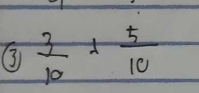 ③ 3/10 + 5/10